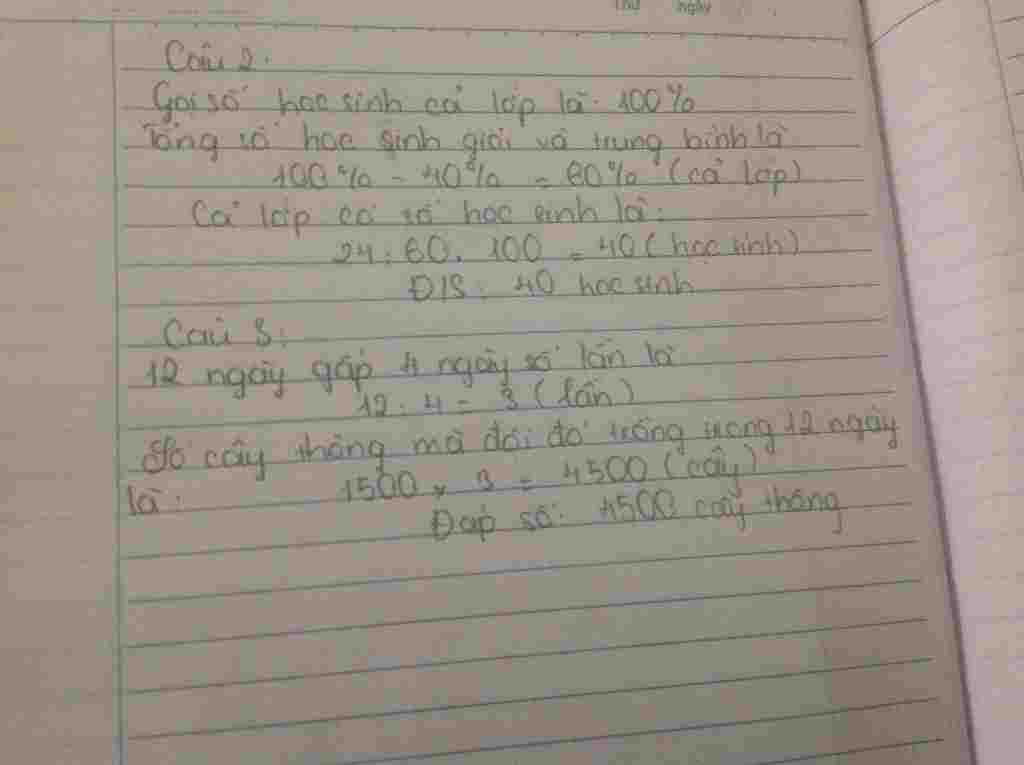 Thứ ngày
Câu 2:
Gọi số học sinh cả lớp là: 100%
Tổng số học sinh giỏi và trung bình là
100% - 40% = 60% (cả lớp)
Cả lớp có số học sinh là:
24 : 60 . 100 = 40 (học sinh)
Đ/S: 40 học sinh
Câu 3:
12 ngày gấp 4 ngày số lần là
12 : 4 = 3 (lần)
Số cây thông mà đội đó trồng trong 12 ngày
là: 1500 x 3 = 4500 (cây)
Đáp số: 4500 cây thông